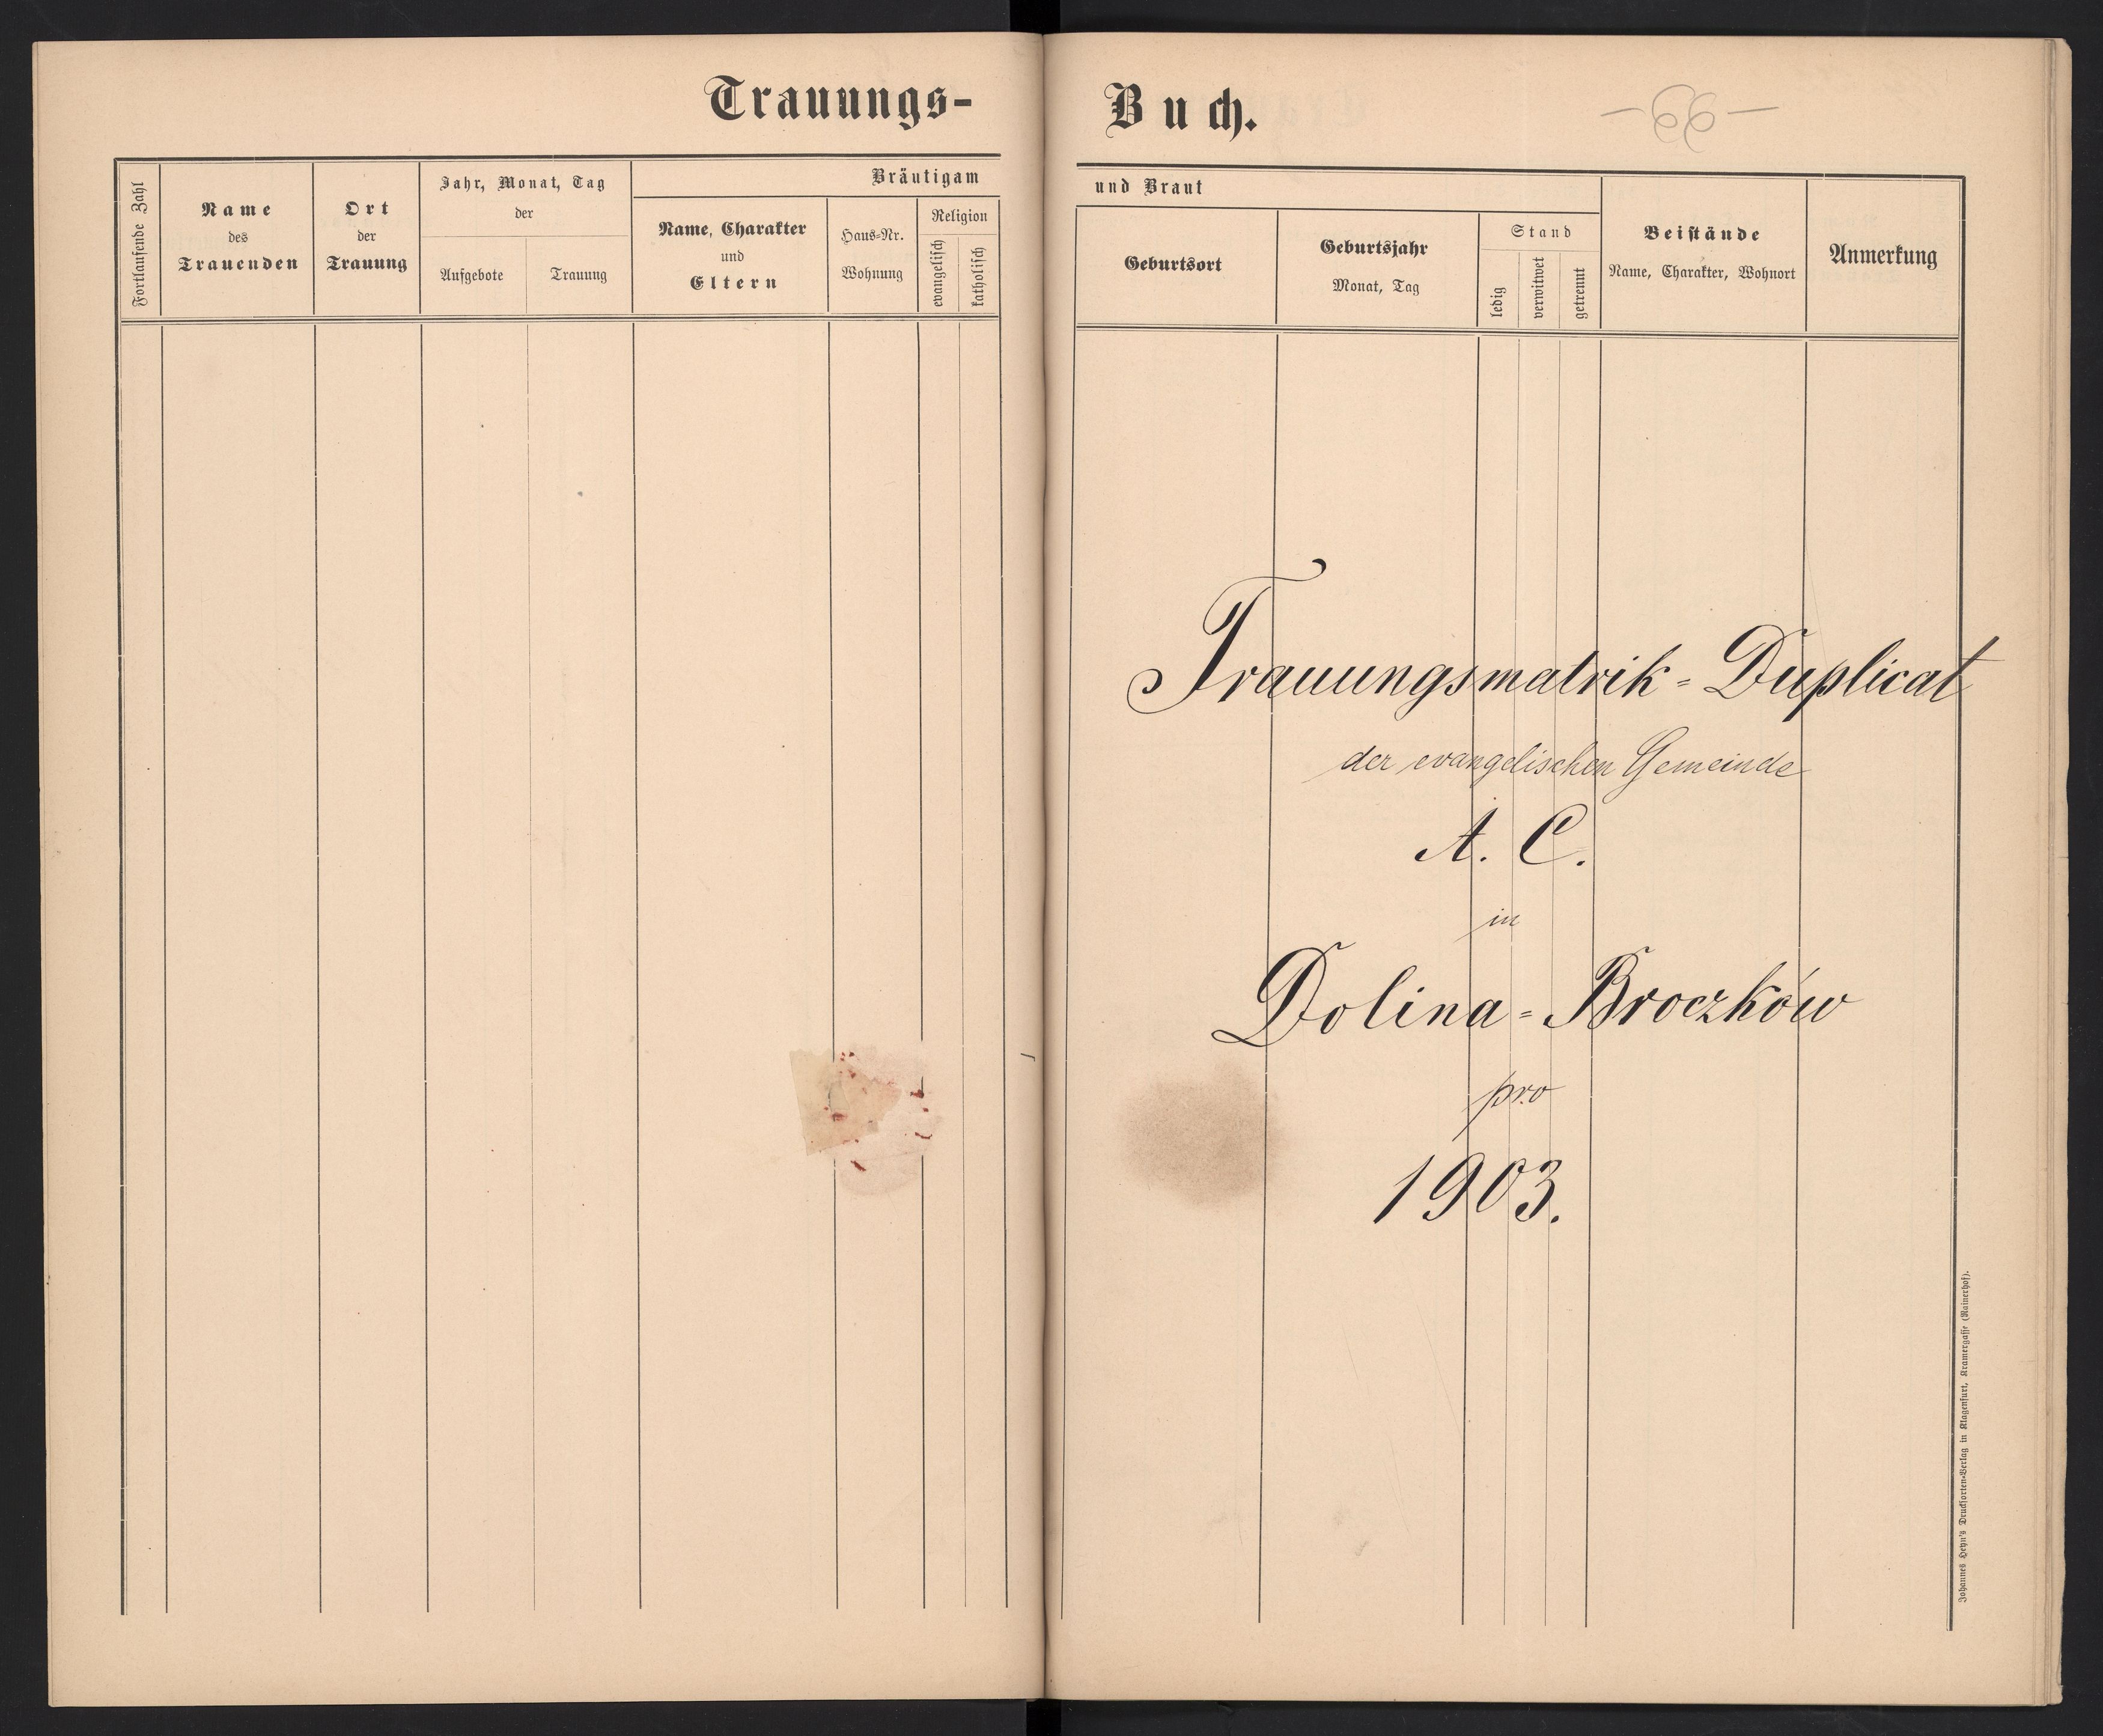 Trauungs-Buch.
-66-
Fortlaufende Zahl
Name
des
Trauenden
Ort
der
Trauung
Jahr, Monat, Tag
der
Aufgebote
Trauung
Bräutigam und Braut
Name, Charakter
und
Eltern
Haus=Nr.
Wohnung
Religion
evangelisch
katholisch
Geburtsort
Geburtsjahr
Monat, Tag
Stand
ledig
verwitwet
getrennt
Beistände
Name, Charakter, Wohnort
Anmerkung
Trauungsmatrik = Duplicat
der evangelischen Gemeinde
A. C.
in
Dolina = Broczków
pro
1903.
Johannes Heyn's Drucksorten=Verlag in Klagenfurt, Kramergasse (Rainerhof).